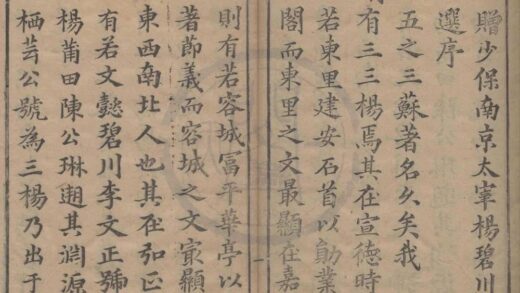 贈少保南京太宰楊碧川
選序
五之三蘇著名乆矣我
有三三楊焉其在宣德時
若東里建安石首以勛業
閣而東里之文最顯在嘉
則有若容城冨平華亭以
著節義而容城之文㝡顯
東西南北人也其在弘正
有若文懿碧川李文正號
楊莆田陳公琳遡其淵源
栖芸公號為三楊乃出于